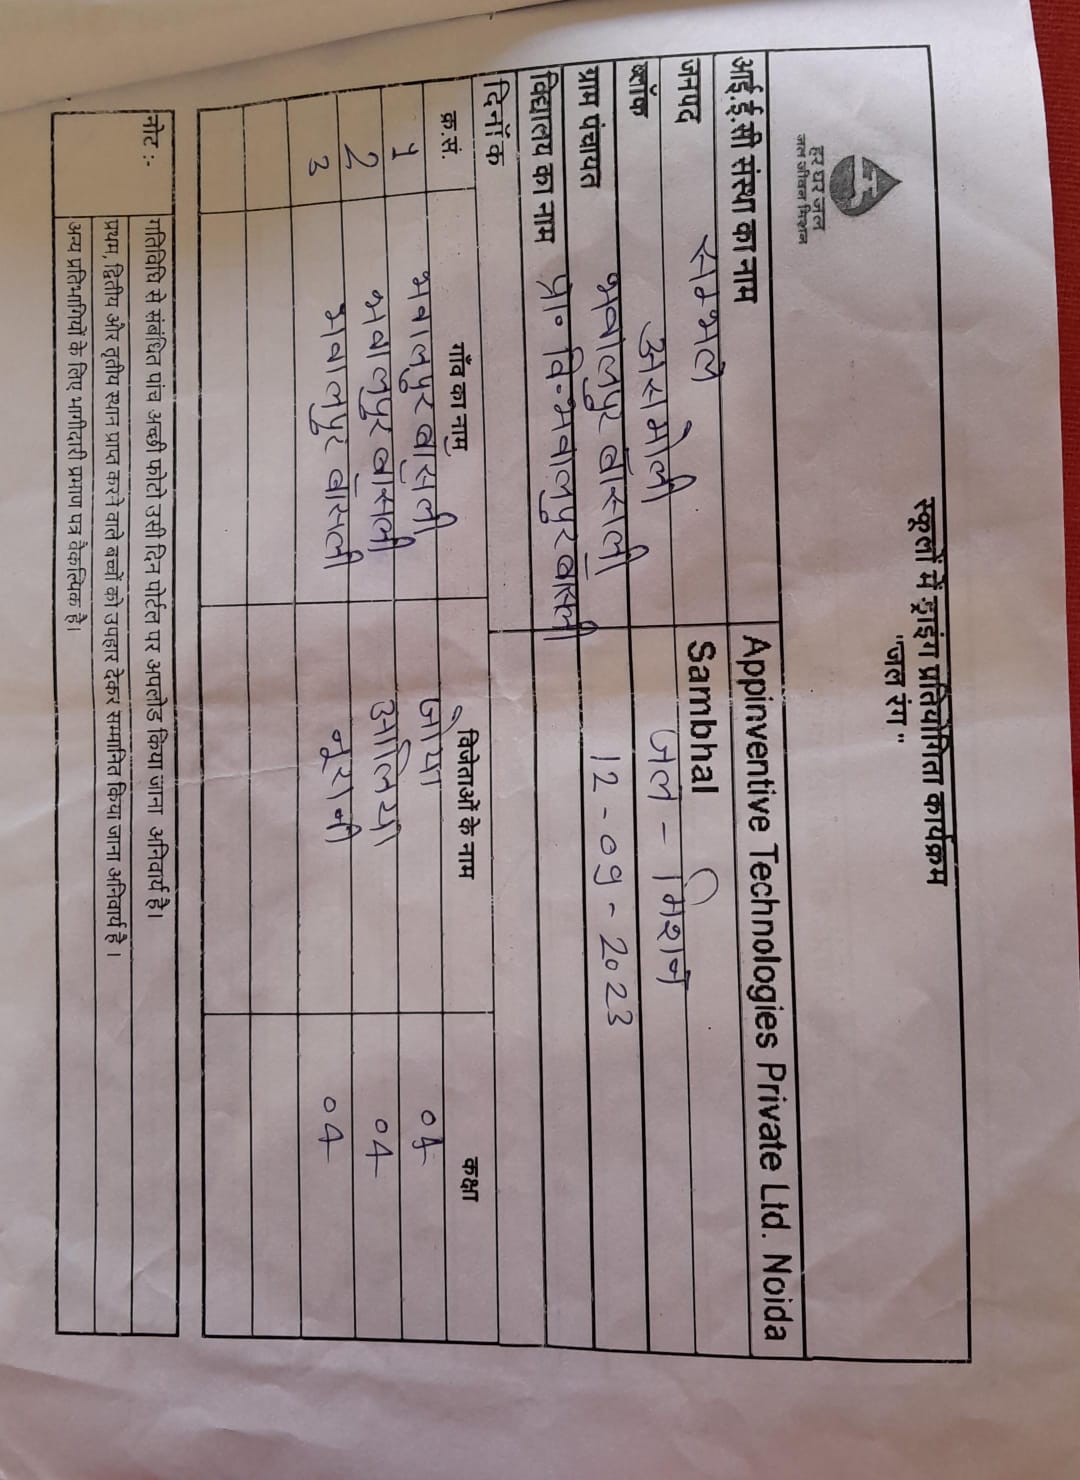 स्कूलों में ड्राइंग प्रतियोगिता कार्यक्रम
"जल रंग"
हर घर जल
जल जीवन मिशन
आई.ई.सी संस्था का नाम Appinventive Technologies Private Ltd. Noida
जनपद सम्भल Sambhal
ब्लॉक असमोली जल - मिशन
ग्राम पंचायत भवालपुर बांसली 12-09-2023
विद्यालय का नाम प्रा० वि० भवालपुर बासली
दिनाँक
क्र.सं. गाँव का नाम विजेताओं के नाम कक्षा
1 भवालपुर बांसली जोया 04
2 भवालपुर बांसली आलिया 04
3 भवालपुर बांसली नूरानी 04
नोट :- गतिविधि से संबंधित पांच अच्छी फोटो उसी दिन पोर्टल पर अपलोड किया जाना अनिवार्य है।
प्रथम, द्वितीय और तृतीय स्थान प्राप्त करने वाले बच्चों को उपहार देकर सम्मानित किया जाना अनिवार्य है।
अन्य प्रतिभागियों के लिए भागीदारी प्रमाण पत्र वैकल्पिक है।